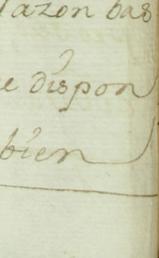 Mazon bas
e dispon
bien